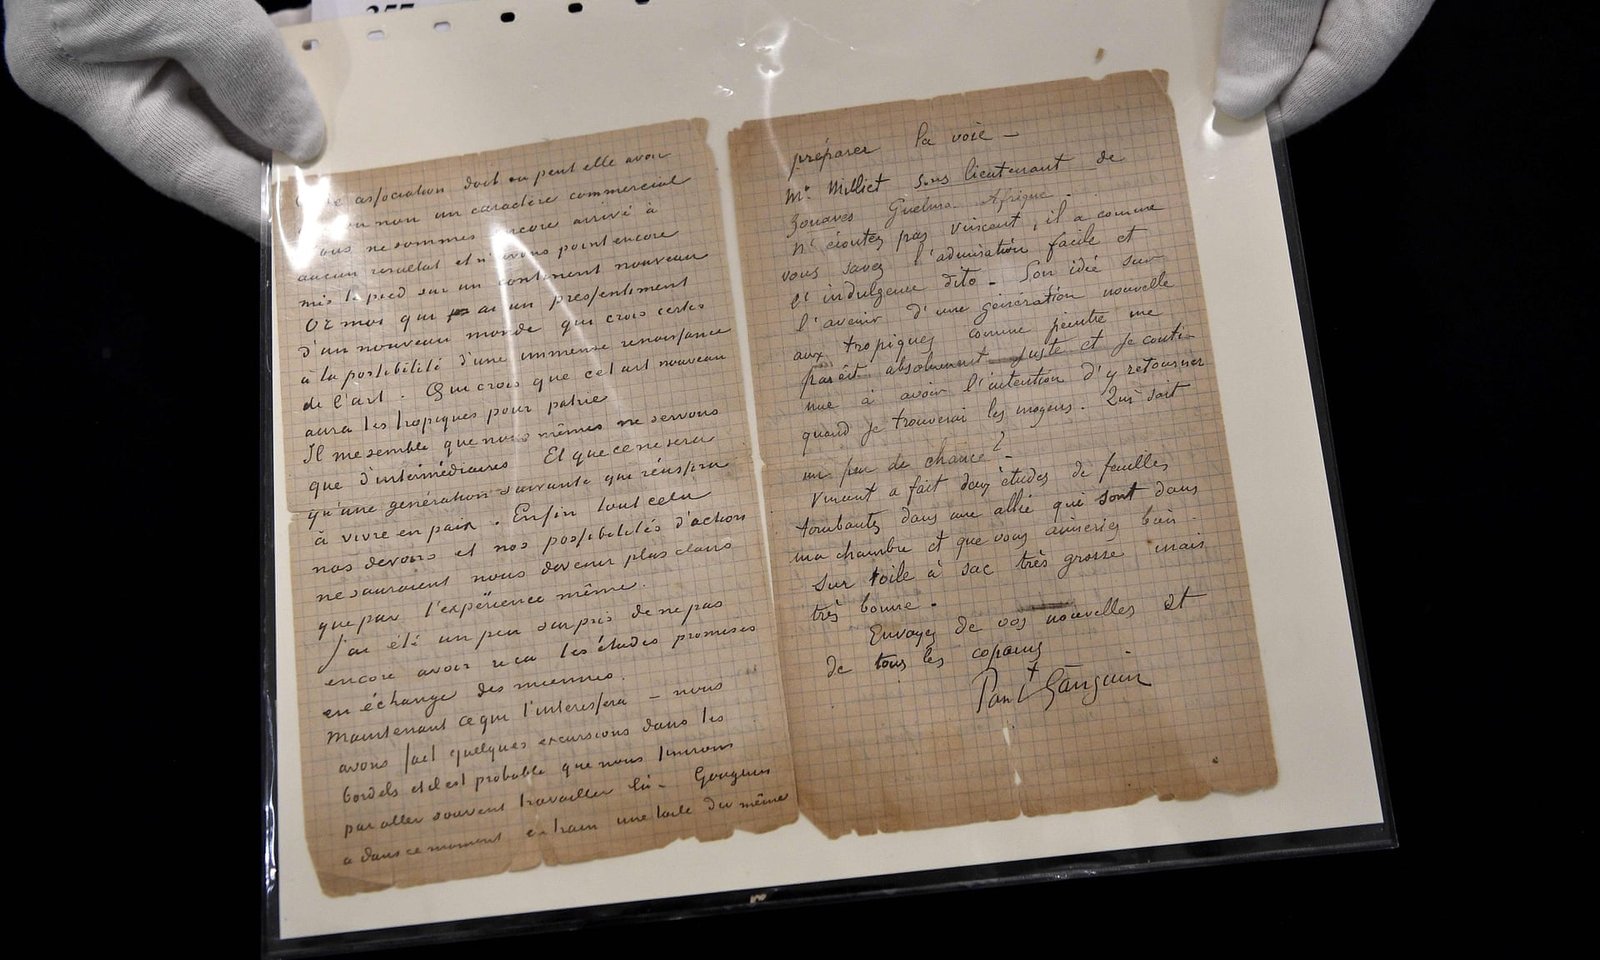 257
association doit ou peut elle avoir
ou non un caractère commercial
nous ne sommes encore arrivé à
aucun resultat et n'avons point encore
mis le pied sur un continent nouveau
Or moi qui ai un pressentiment
d'un nouveau monde qui crois certes
à la possibilité d'une immense renaissance
de l'art. Qui crois que cet art nouveau
aura les tropiques pour patrie
Il me semble que nous mêmes ne servons
que d'intermédiaires Et que ce ne sera
qu'une génération suivante qui réussira
à vivre en paix. Enfin tout cela
nos devoirs et nos possibilités d'action
ne sauraient nous devenir plus clairs
que par l'expérience même.
J'ai été un peu surpris de ne pas
encore avoir recu les études promises
en échange des miennes.
Maintenant ce qui t'interessera - nous
avons fait quelques excursions dans les
bordels et il est probable que nous finirons
par aller souvent travailler là - Gauguin
a dans ce moment en train une toile du même
préparer la voie -
Mr Milliet sous lieutenant de
zouaves Guelma Afrique.
N'écoutez pas Vincent, il a comme
vous savez l'admiration facile et
l'indulgence dito - Son idée sur
l'avenir d'une génération nouvelle
aux tropiques comme peintre me
parait absolument juste et je conti-
nue à avoir l'intention d'y retourner
quand je trouverai les moyens. Qui sait
un peu de chance?-
Vincent a fait deux études de feuilles
tombantes dans une allée qui sont dans
ma chambre et que vous aimeriez bien.
Sur toile à sac très grosse mais
très bonne.
Envoyez de vos nouvelles et
de tous les copains
Paul Gauguin